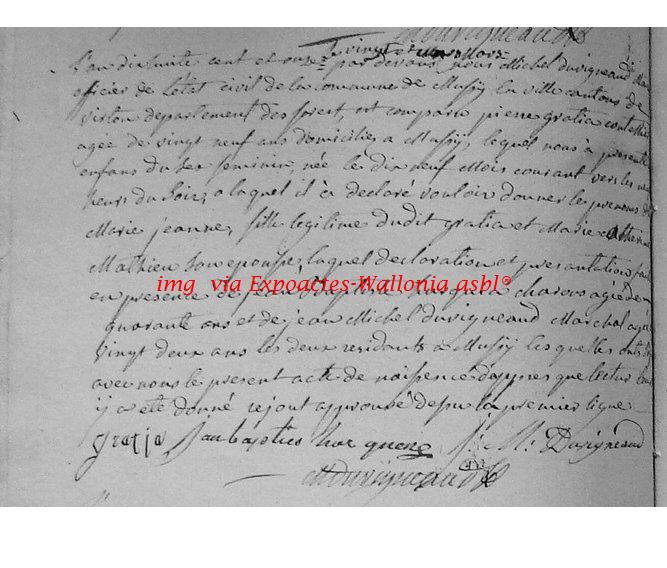 L'an dix huite cent et onze le vingt et un mars par devant nous Michel duvigneaud Maire
officier de l'etat civil de la commune de Mussy la ville cantons de
virton departement des forest, est comparu pierre gratia
agée de vingt neuf ans domiciliés a Mussy, lequel nous a presenté
enfans du sex feminin, née le dix neuf Mois courant vers les neuf
heurs du soir, a laquel il à declaré vouloir donner les prenoms de
Marie jeanne, fille legitime dudit gratia et Marie catherine
Mathieu son epouse, laquel declaration et presantation fait
img via Expoactes-Wallonia asbl®
en presence de jean Baptiste charons agée de
quarante ans et de jean Michel duvigneaud Marchal agée
vingt deux ans les deux residants a Mussy les quelles ont
avec nous le present acte de naissence dappres que lectur
ij a eté donné rejout approuvé depu la premier ligne
gratia Jan bapties J: M: Duvigneaud
M duvigneaud